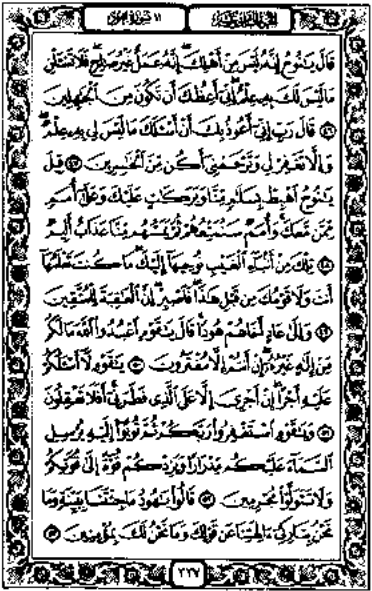 ١١ سورة هود
الجزء الثاني عشر
قَالَ يَٰنُوحُ إِنَّهُۥ لَيْسَ مِنْ أَهْلِكَ ۖ إِنَّهُۥ عَمَلٌ غَيْرُ صَٰلِحٍ ۖ فَلَا تَسْـَٔلْنِ
مَا لَيْسَ لَكَ بِهِۦ عِلْمٌ ۖ إِنِّىٓ أَعِظُكَ أَن تَكُونَ مِنَ ٱلْجَٰهِلِينَ
﴿٤٦﴾ قَالَ رَبِّ إِنِّىٓ أَعُوذُ بِكَ أَنْ أَسْـَٔلَكَ مَا لَيْسَ لِى بِهِۦ عِلْمٌ ۖ
وَإِلَّا تَغْفِرْ لِى وَتَرْحَمْنِىٓ أَكُن مِّنَ ٱلْخَٰسِرِينَ ﴿٤٧﴾ قِيلَ
يَٰنُوحُ ٱهْبِطْ بِسَلَٰمٍ مِّنَّا وَبَرَكَٰتٍ عَلَيْكَ وَعَلَىٰٓ أُمَمٍ
مِّمَّن مَّعَكَ ۚ وَأُمَمٌ سَنُمَتِّعُهُمْ ثُمَّ يَمَسُّهُم مِّنَّا عَذَابٌ أَلِيمٌ
﴿٤٨﴾ تِلْكَ مِنْ أَنۢبَآءِ ٱلْغَيْبِ نُوحِيهَآ إِلَيْكَ ۖ مَا كُنتَ تَعْلَمُهَآ
أَنتَ وَلَا قَوْمُكَ مِن قَبْلِ هَٰذَا ۖ فَٱصْبِرْ ۖ إِنَّ ٱلْعَٰقِبَةَ لِلْمُتَّقِينَ
﴿٤٩﴾ وَإِلَىٰ عَادٍ أَخَاهُمْ هُودًا ۚ قَالَ يَٰقَوْمِ ٱعْبُدُوا۟ ٱللَّهَ مَا لَكُم
مِّنْ إِلَٰهٍ غَيْرُهُۥٓ ۖ إِنْ أَنتُمْ إِلَّا مُفْتَرُونَ ﴿٥٠﴾ يَٰقَوْمِ لَآ أَسْـَٔلُكُمْ
عَلَيْهِ أَجْرًا ۖ إِنْ أَجْرِىَ إِلَّا عَلَى ٱلَّذِى فَطَرَنِىٓ ۚ أَفَلَا تَعْقِلُونَ
﴿٥١﴾ وَيَٰقَوْمِ ٱسْتَغْفِرُوا۟ رَبَّكُمْ ثُمَّ تُوبُوٓا۟ إِلَيْهِ يُرْسِلِ
ٱلسَّمَآءَ عَلَيْكُم مِّدْرَارًا وَيَزِدْكُمْ قُوَّةً إِلَىٰ قُوَّتِكُمْ
وَلَا تَتَوَلَّوْا۟ مُجْرِمِينَ ﴿٥٢﴾ قَالُوا۟ يَٰهُودُ مَا جِئْتَنَا بِبَيِّنَةٍ وَمَا
نَحْنُ بِتَارِكِىٓ ءَالِهَتِنَا عَن قَوْلِكَ وَمَا نَحْنُ لَكَ بِمُؤْمِنِينَ ﴿٥٣﴾
٢٢٧